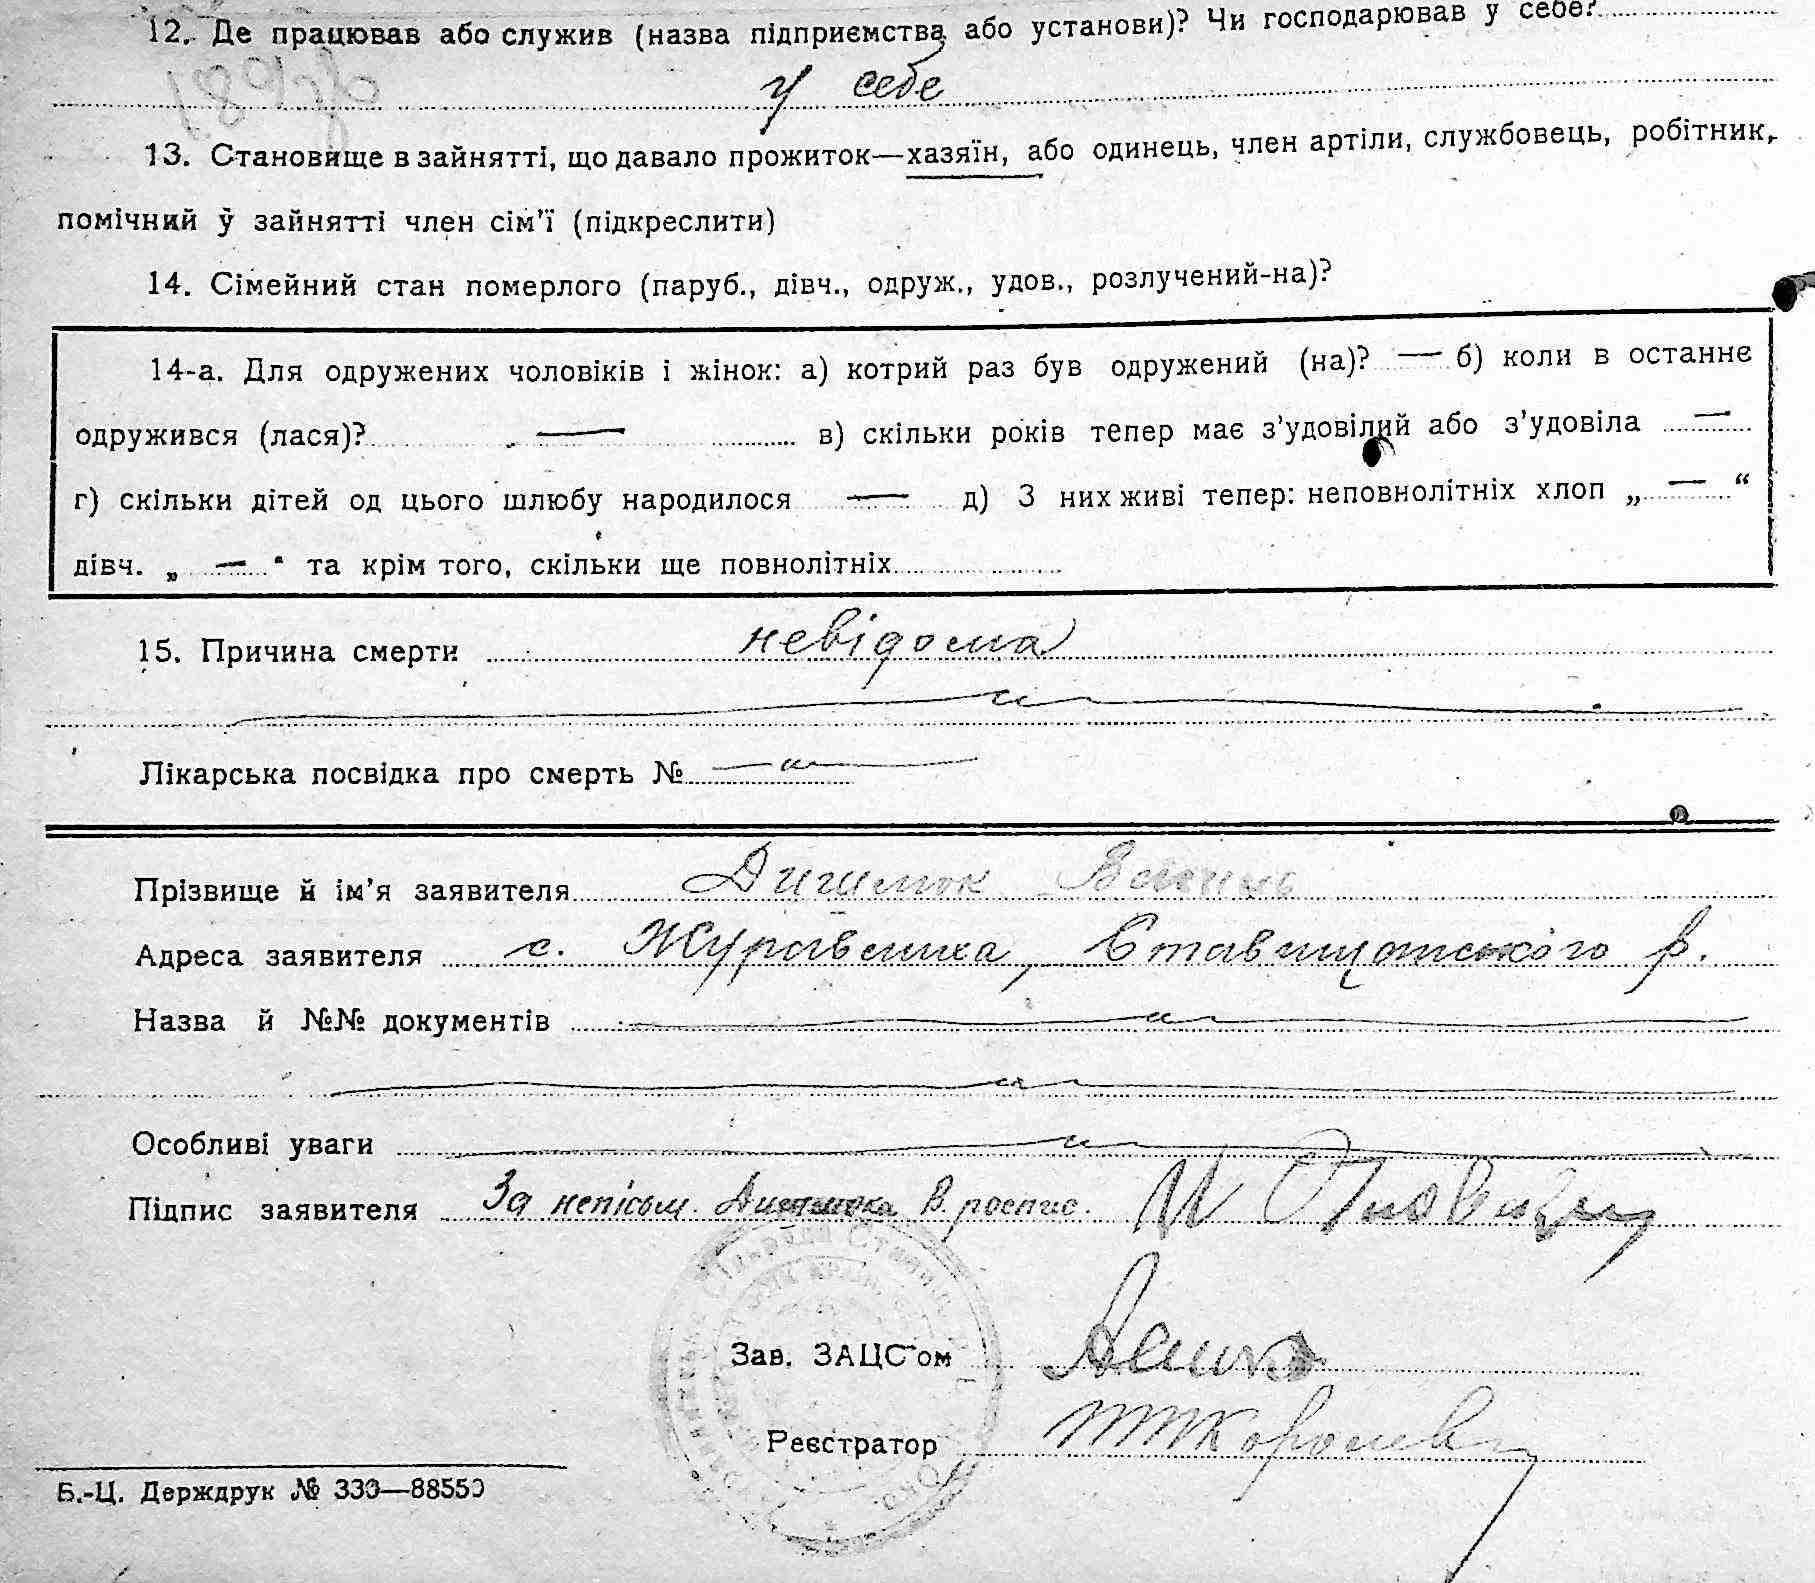 12. Де працював або служив (назва підприємства або установи)? Чи господарював у себе?
у себе
13. Становище в зайнятті, що давало прожиток—хазяїн, або одинець, член артіли, службовець, робітник,
помічний ў зайнятті член сім'ї (підкреслити)
14. Сімейний стан померлого (паруб., дівч., одруж., удов., розлучений-на)?
14-а. Для одружених чоловіків і жінок: а) котрий раз був одружений (на)? — б) коли в останнє
одружився (лася)? — в) скільки років тепер має з'удовілий або з'удовіла —
г) скільки дітей од цього шлюбу народилося — д) З них живі тепер: неповнолітніх хлоп „ — “
дівч. „ — “ та крім того, скільки ще повнолітніх
15. Причина смерти невідома
— „ —
Лікарська посвідка про смерть № — „ —
Прізвище й ім'я заявителя
Адреса заявителя с. Журавлиха, Ставищанського р.
Назва й №№ документів — „ —
— „ —
Особливі уваги — „ —
Підпис заявителя За непісьм. В. роспис.
Зав. ЗАЦС'ом
Реєстратор
Б.-Ц. Держдрук № 330—88550